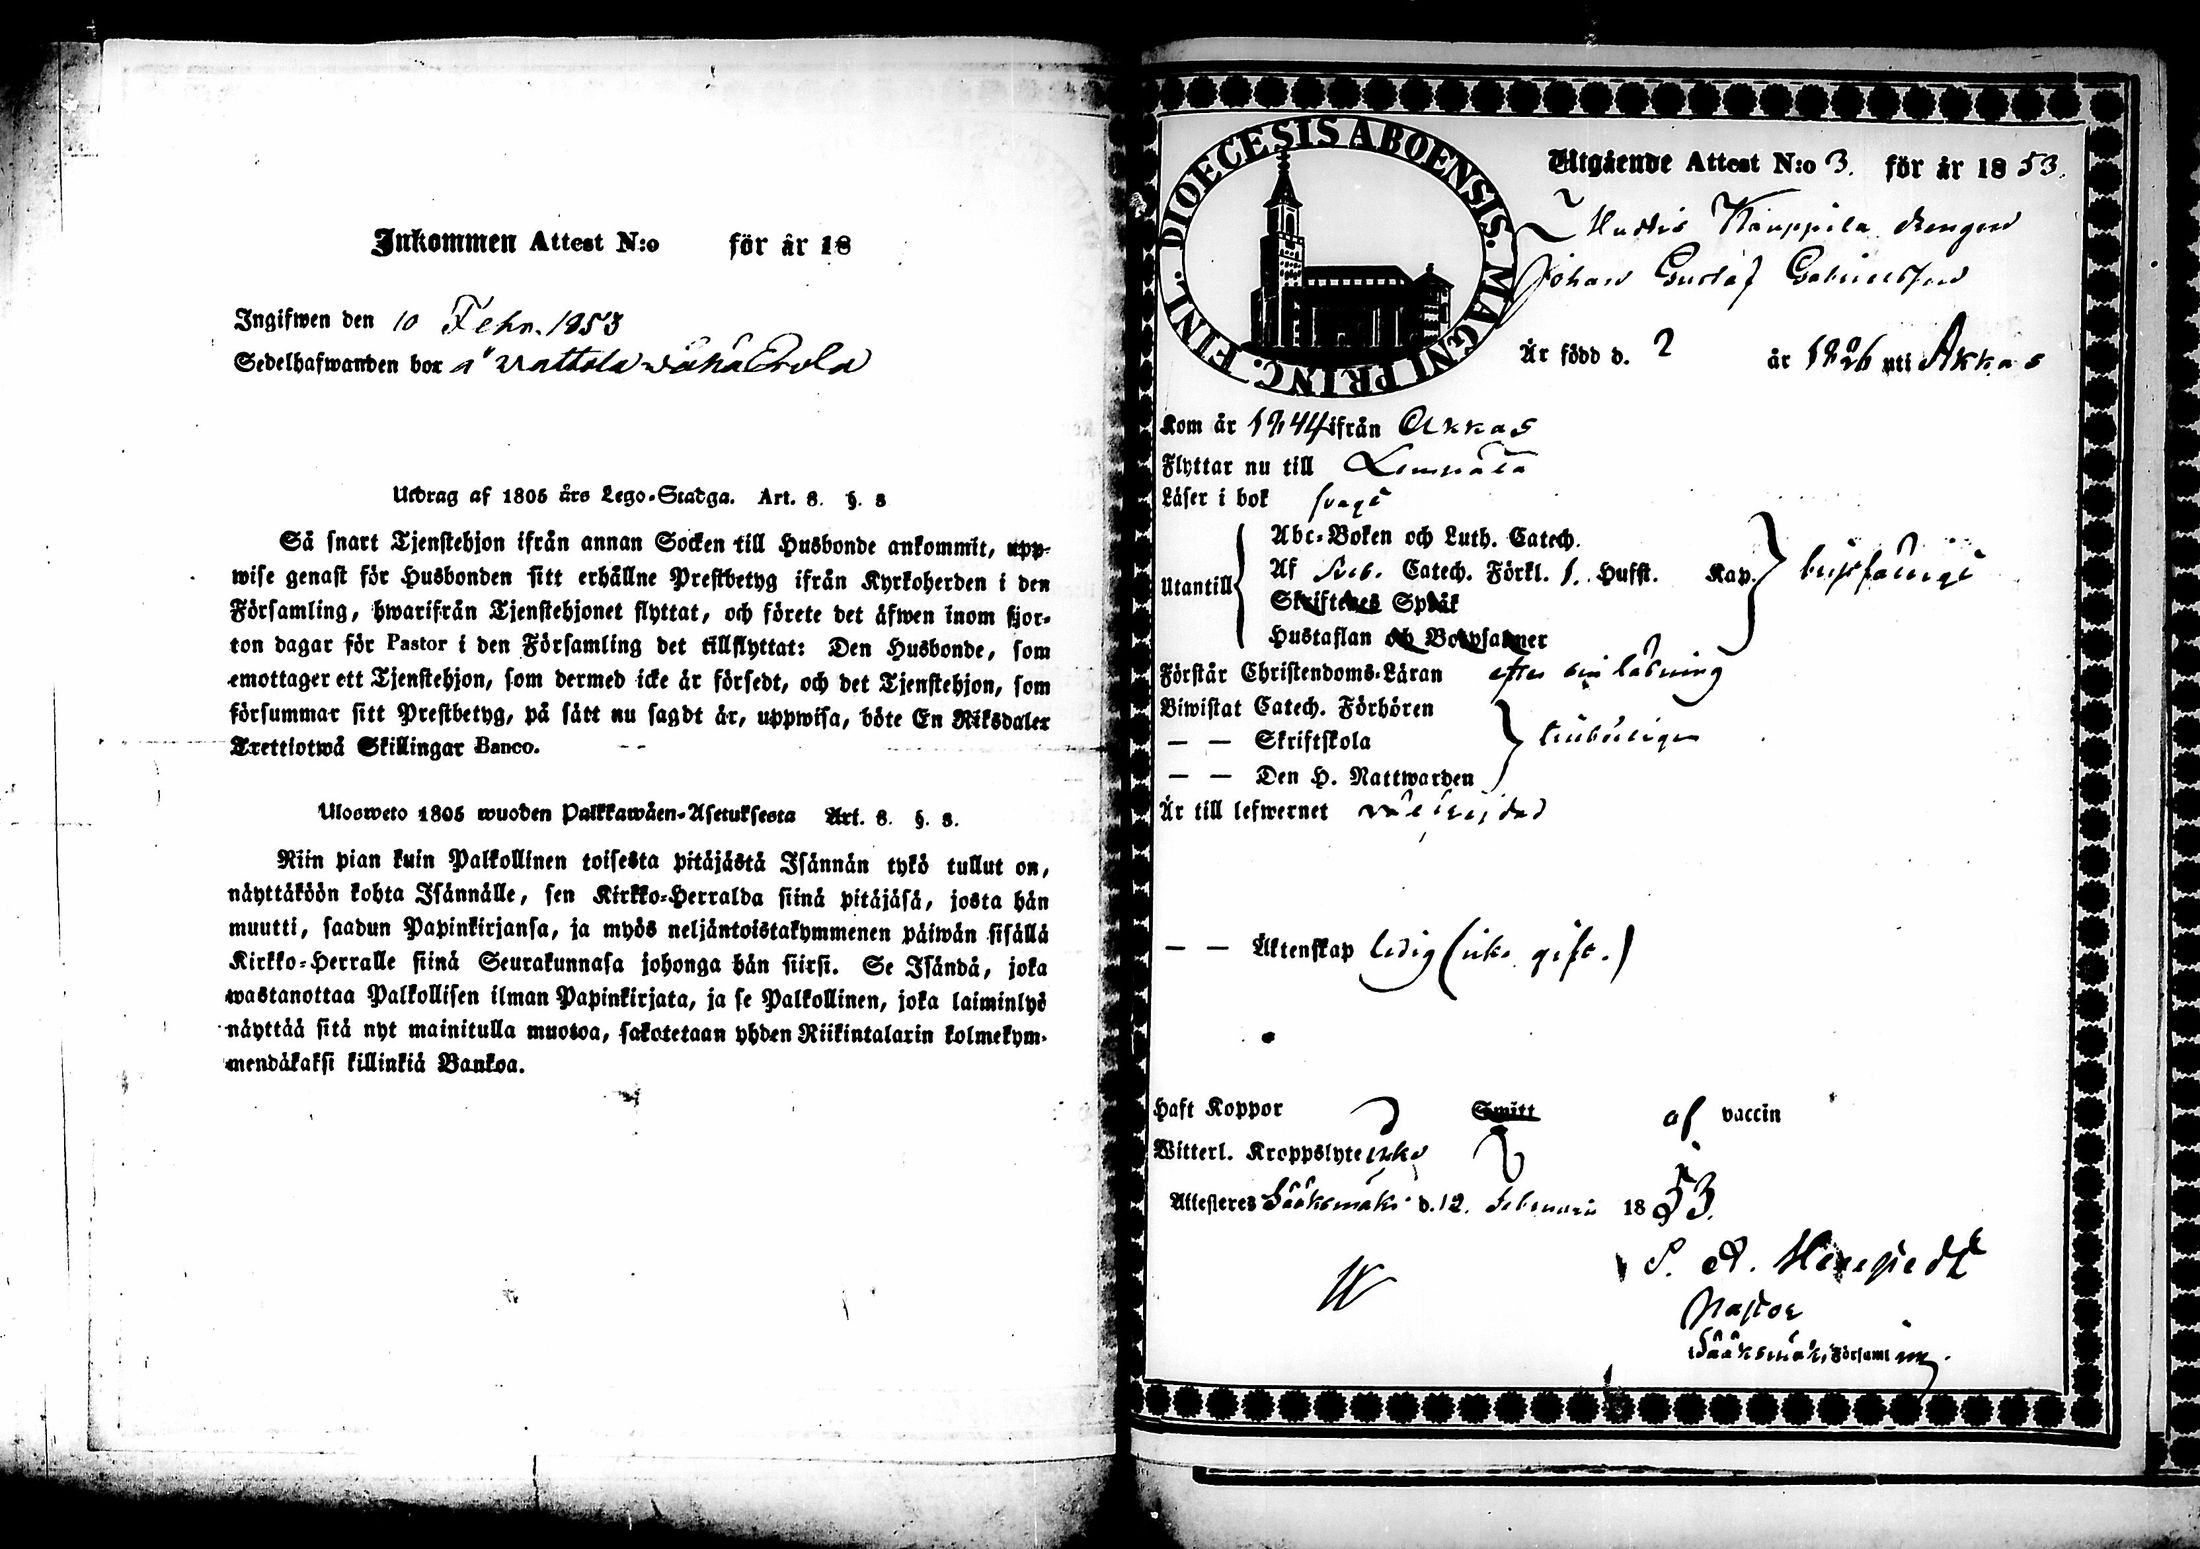 Inkommen Attest N:o för år 18
Ingifwen den 10 Febr. 1853
Sedelhafwanden bor å
Utdrag af 1805 års Lego-Stadga. Art. 8. §. 8
Så snart Tjenstehjon ifrån annan Socken till Husbonde ankommit, upp-
wise genast för Husbonden sitt erhållne Prestbetyg ifrån Kyrkoherden i den
Församling, hwarifrån Tjenstehjonet flyttat, och förete det äfwen inom fjor-
ton dagar för Pastor i den Församling det tillflyttat: Den Husbonde, som
emottager ett Tjenstehjon, som dermed icke är försedt, och det Tjenstehjon, som
försummar sitt Prestbetyg, på sätt nu sagdt är, uppwisa, böte En Riksdaler
Trettiotwå Skillingar Banco.
Ulosweto 1805 wuoden Palkkawäen-Asetuksesta Art. 8. §. 8.
Niin pian kuin Palkollinen toisesta pitäjästä Isännän tykö tullut on,
näyttäköön kohta Isännälle, sen Kirkko-Herralda siinä pitäjäsä, josta hän
muutti, saadun Papinkirjansa, ja myös neljäntoistakymmenen päiwän sisällä
Kirkko-Herralle siinä Seurakunnasa johonga hän siirsi. Se Isändä, joka
wastanottaa Palkollisen ilman Papinkirjata, ja se Palkollinen, joka laiminlyö
näyttää sitä nyt mainitulla muotoa, sakotetaan yhden Riikintalarin kolmekym-
mendäkaksi killinkiä Bankoa.
DIOECESIS ABOENSIS. MAGNI PRINC. FINL.
Utgående Attest N:o 3. för år 1853.
Kauppila drengen
Johan Gustaf Gabrielsson
Är född d. ? år 1826 uti Akkas
Kom år 1844 ifrån Akkas
Flyttar nu till Lempälä
Läser i bok svagt
Utantill
Abc-Boken och Luth. Catech.
Af Sveb. Catech. Förkl. 1. Hufst. Kap.
Skriftenes Språk
Hustaflan och Botpsalmer
Förstår Christendoms-Läran efter sin läsning
Biwistat Catech. Förhören
— — Skriftskola
— — Den H. Nattwarden
Är till lefwernet välfrejdad
— — Äktenskap ledig (icke gift.)
Haft Koppor Smitt af vaccin
Witterl. Kroppslyte icke
Attesteres Sääksmäki d. 12. Februarii 1853.
Pastor
Sääksmäki Församling.